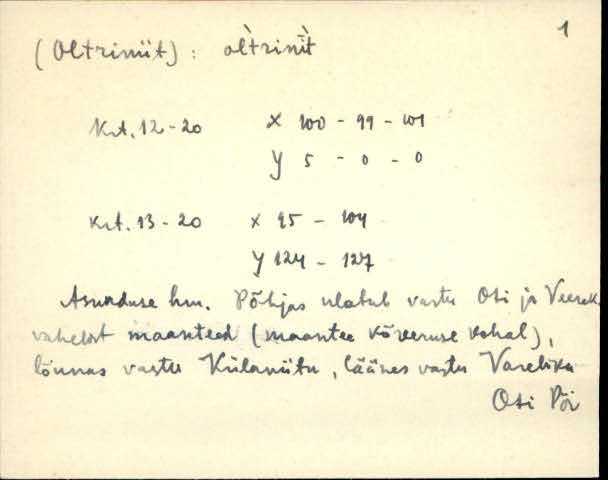 1
(Oltriniit): oltrinìit̀
Krt. 12-20 X 100 - 99 - 101
Y 5 - 0 - 0
Krt. 13-20 X 95 - 104
Y 124 - 127
Asunduse hm. Põhjas ulatub vastu Oti ja
vahelist maanteed (maantee kõveruse kohal),
lõunas vastu Külaniitu, läänes vastu
Oti Pöi